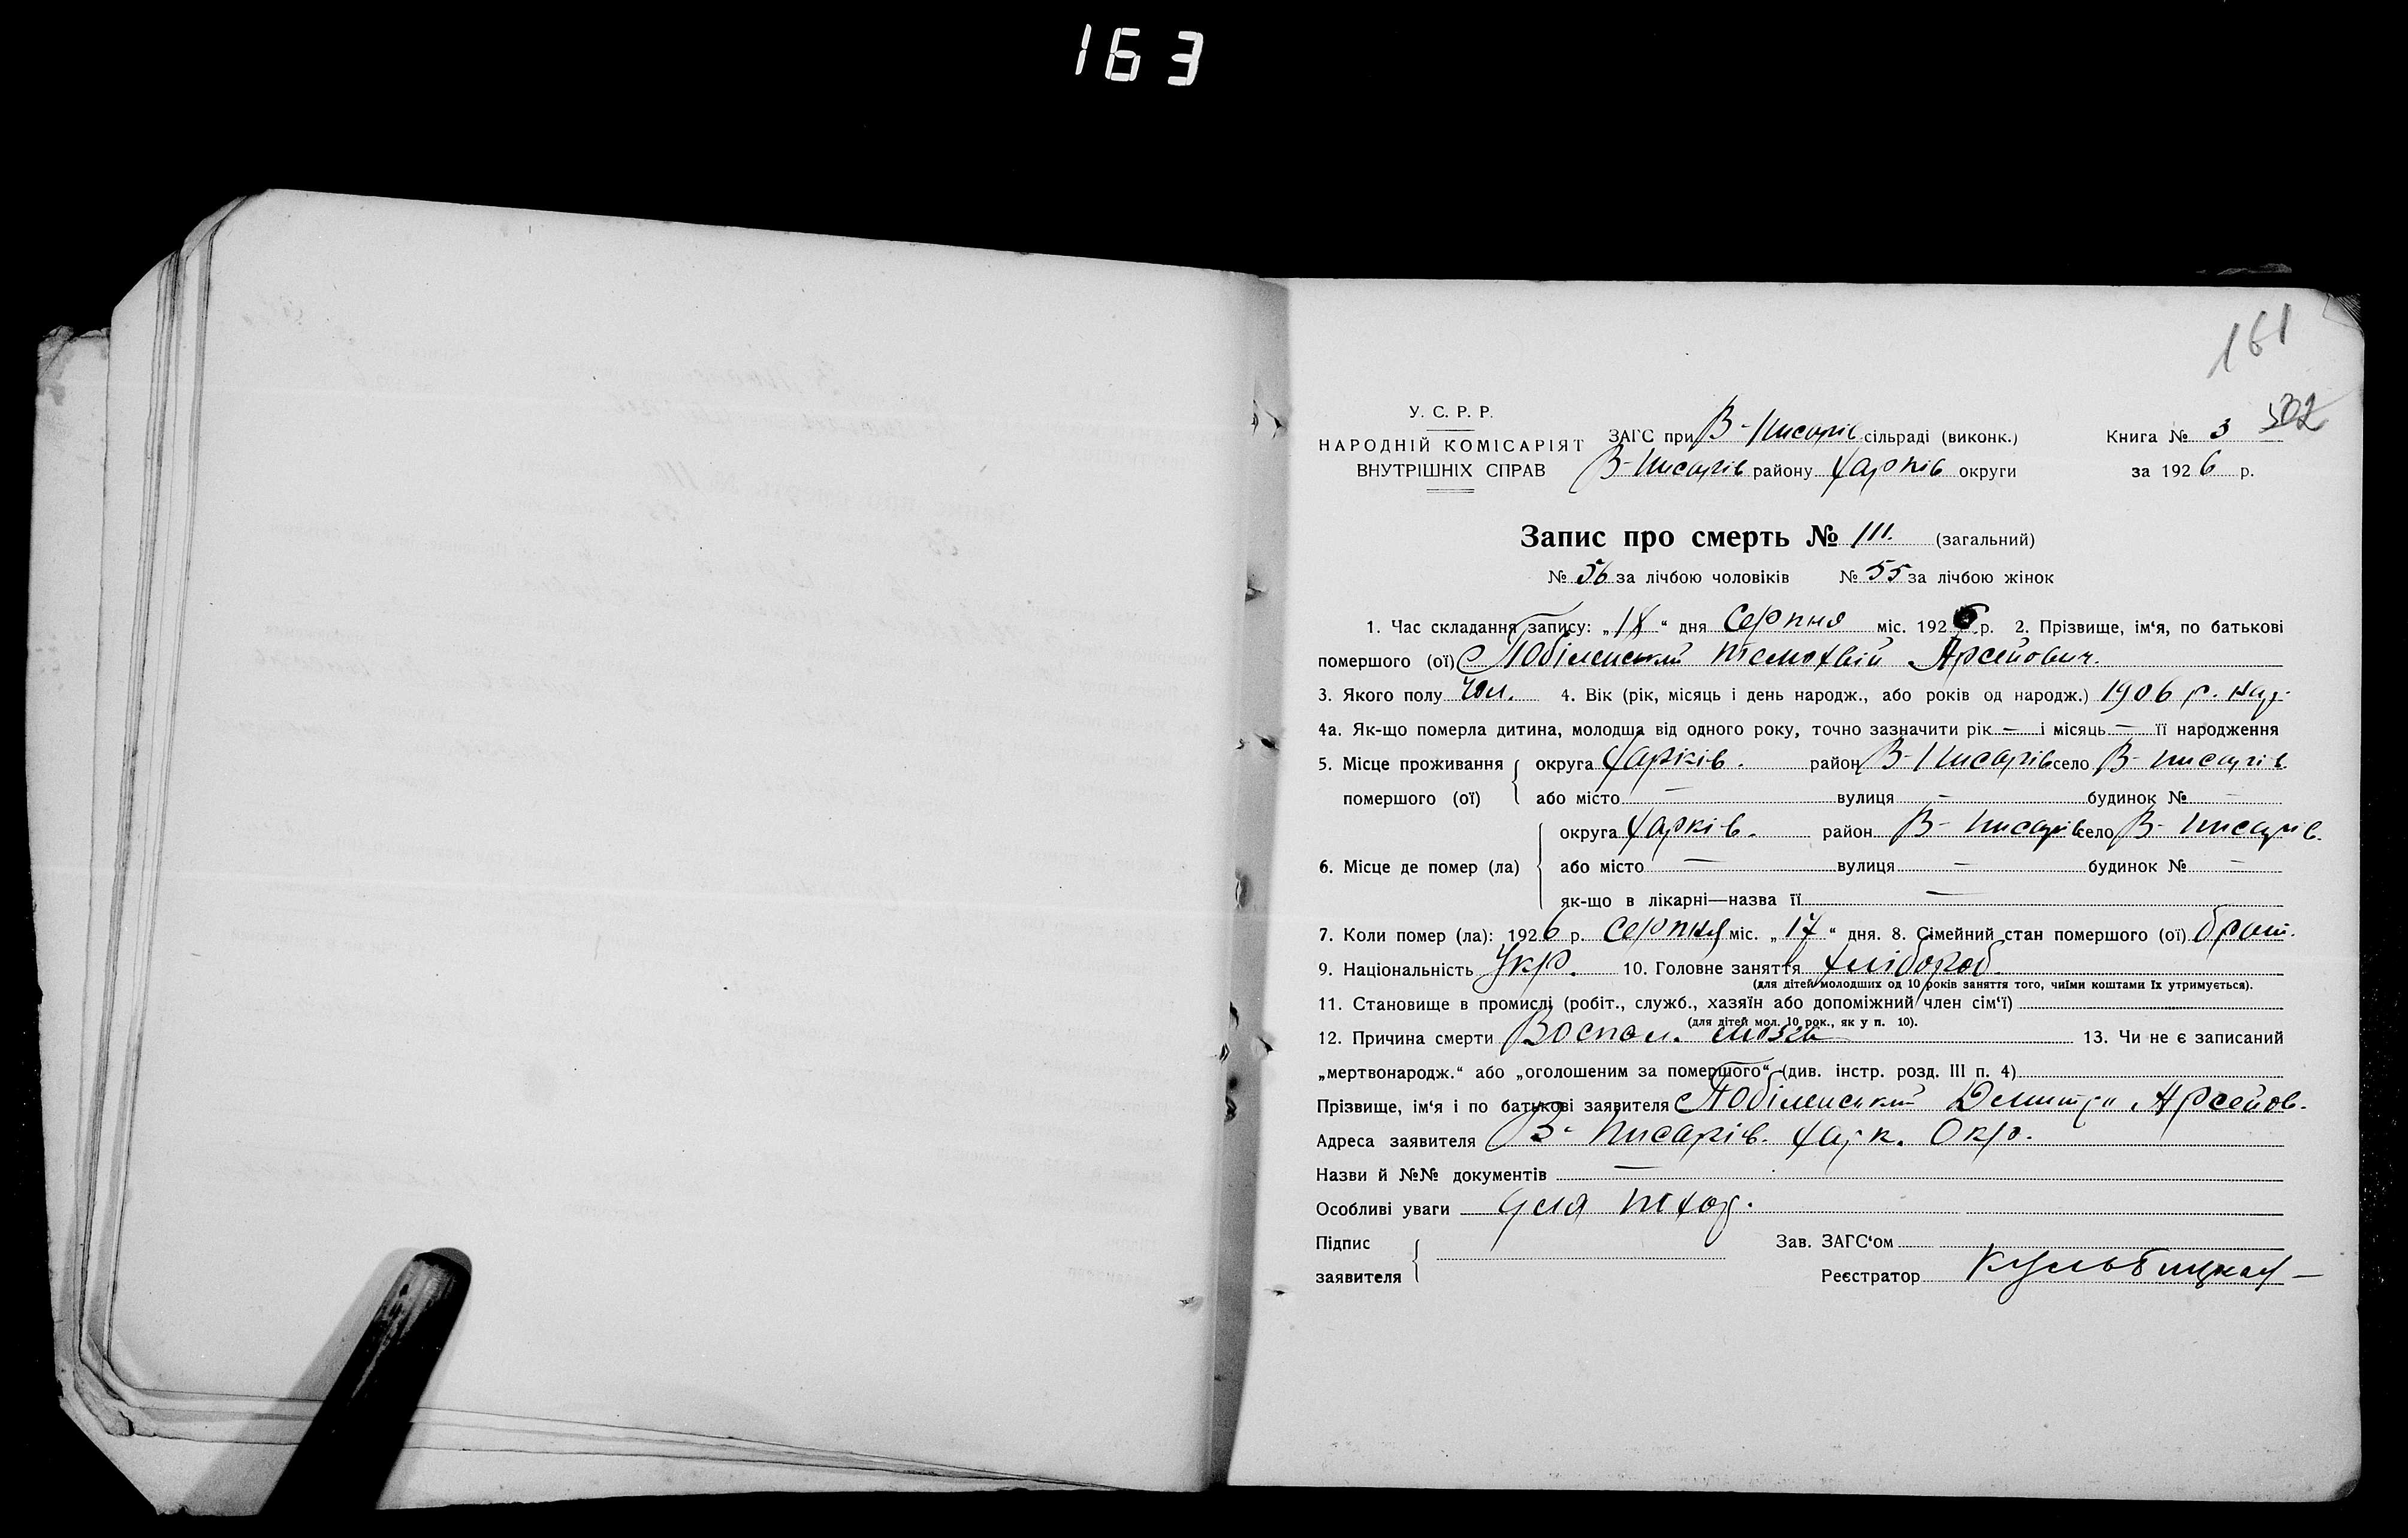 163
161
302
У. С. Р. Р.
НАРОДНІЙ КОМІСАРІЯТ
ВНУТРІШНІХ СПРАВ
ЗАГС при В-Писарів сільраді (виконк.)
В-Писарів району Харків округи
Книга № 3
за 1926 р.
Запис про смерть № 111. (загальний)
№ 56 за лічбою чоловіків № 55 за лічбою жінок
1. Час складання запису: „ “ дня Серпня міс. 1926 р. 2. Прізвище, ім‘я, по батькові
помершого (ої) Арсейович.
3. Якого полу чол. 4. Вік (рік, місяць і день народж., або років од народж.) 1906 р. нар.
4а. Як-що померла дитина, молодша від одного року, точно зазначити рік — і місяць — її народження
5. Місце проживання округа Харків. район В-Писарів село В-Писарів
помершого (ої) або місто — вулиця — будинок № —
округа Харків. район В-Писарів село В-Писарів.
6. Місце де помер (ла) або місто — вулиця — будинок № —
як-що в лікарні—назва її —
7. Коли помер (ла): 1926 р. Серпня міс. „17“ дня. 8. Сімейний стан помершого (ої) брат.
9. Національність Укр. 10. Головне заняття хлібороб
(для дітей молодших од 10 років заняття того, чиїми коштами їх утримується).
11. Становище в промислі (робіт., служб., хазяїн або допоміжний член сім‘ї)
(для дітей мол. 10 рок., як у п. 10).
12. Причина смерти Воспал. мозга 13. Чи не є записаний
„мертвонародж.“ або „оголошеним за помершого“ (див. інстр. розд. III п. 4)
Прізвище, ім‘я і по батькові заявителя Арсейов.
Адреса заявителя В-Писарів. Харк. Окр.
Назви й №№ документів —
Особливі уваги для
Підпис
заявителя
Зав. ЗАГС‘ом
Реєстратор